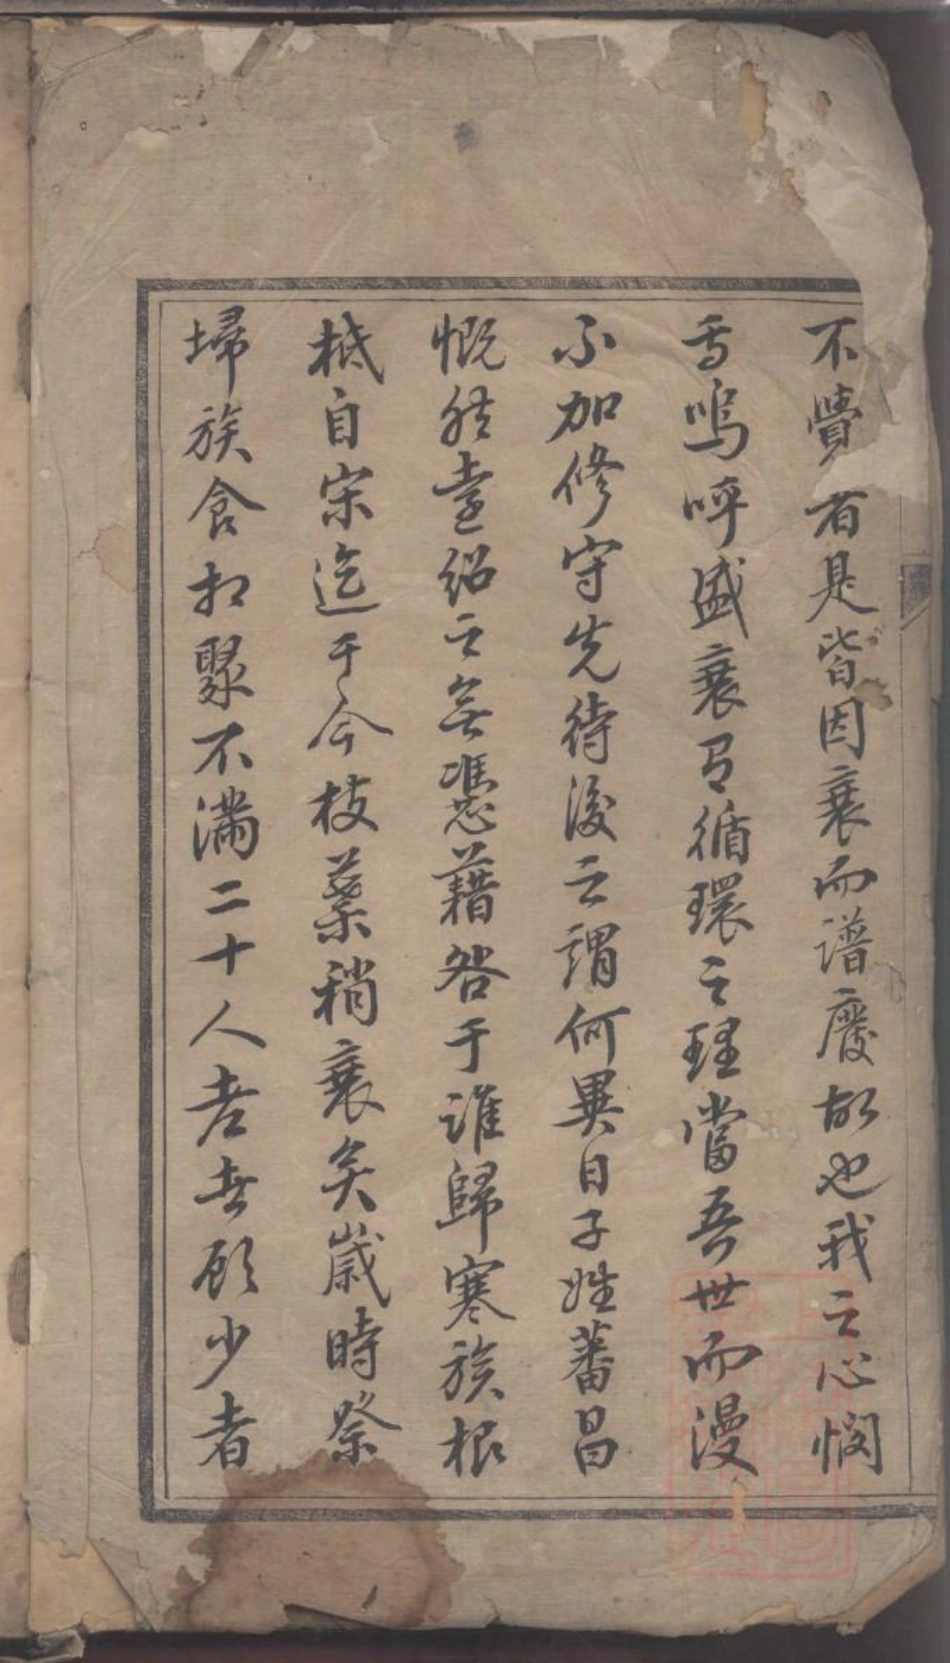 不覺者是皆因衰而譜廢故也我之心憫
焉嗚呼盛衰有循環之理當吾世而漫
不加修守先待後之謂何異日子姓蕃昌
慨然壹紹之無憑藉咎于誰歸寒族根
柢自宋迄于今枝葉稍衰矣歲時祭
埽族食相聚不滿二十人老者顧少者